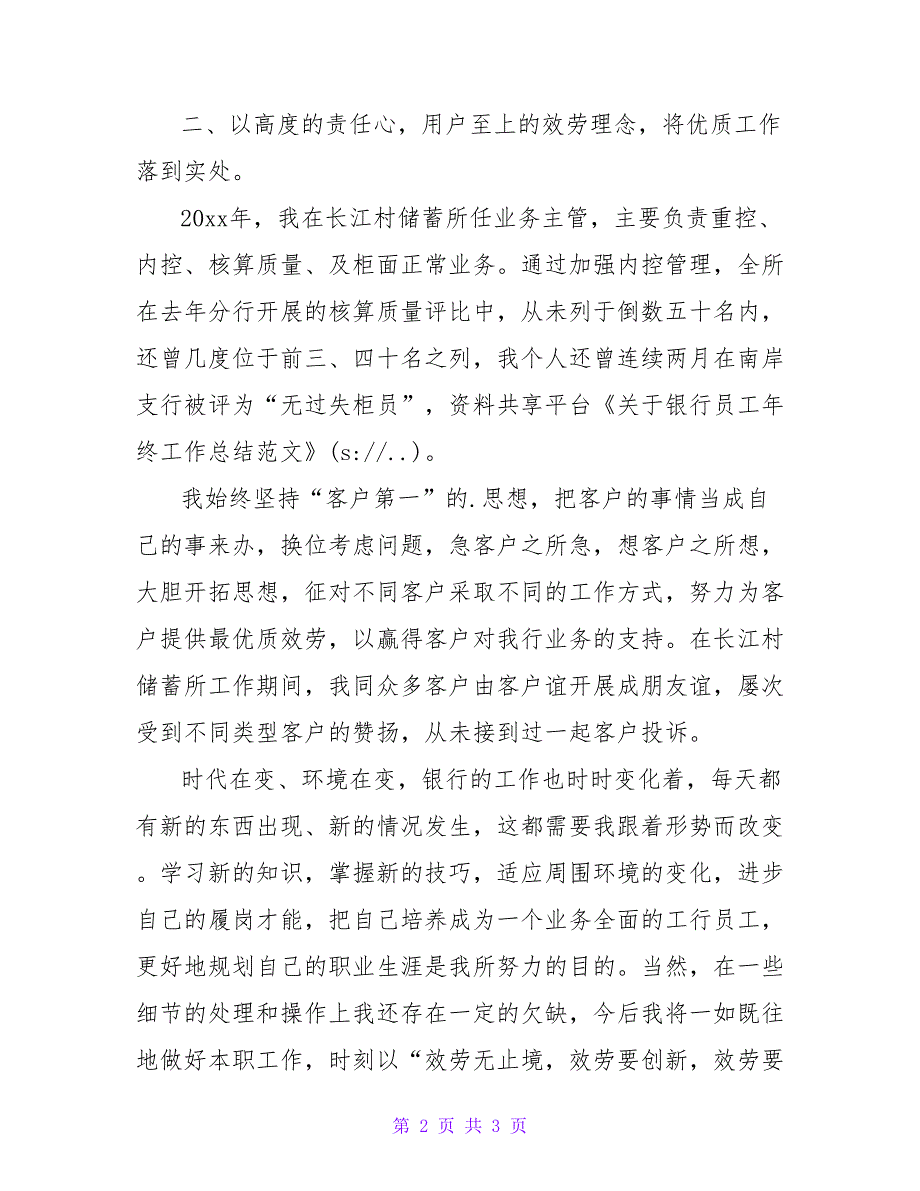 二、以高度的责任心，用户至上的效劳理念，将优质工作
落到实处。
20xx年，我在长江村储蓄所任业务主管，主要负责重控、
内控、核算质量、及柜面正常业务。通过加强内控管理，全所
在去年分行开展的核算质量评比中，从未列于倒数五十名内，
还曾几度位于前三、四十名之列，我个人还曾连续两月在南岸
支行被评为“无过失柜员”，资料共享平台《关于银行员工年
终工作总结范文》(s://..)。
我始终坚持“客户第一”的.思想，把客户的事情当成自
己的事来办，换位考虑问题，急客户之所急，想客户之所想，
大胆开拓思想，征对不同客户采取不同的工作方式，努力为客
户提供最优质效劳，以赢得客户对我行业务的支持。在长江村
储蓄所工作期间，我同众多客户由客户谊开展成朋友谊，屡次
受到不同类型客户的赞扬，从未接到过一起客户投诉。
时代在变、环境在变，银行的工作也时时变化着，每天都
有新的东西出现、新的情况发生，这都需要我跟着形势而改变
。学习新的知识，掌握新的技巧，适应周围环境的变化，进步
自己的履岗才能，把自己培养成为一个业务全面的工行员工，
更好地规划自己的职业生涯是我所努力的目的。当然，在一些
细节的处理和操作上我还存在一定的欠缺，今后我将一如既往
地做好本职工作，时刻以“效劳无止境，效劳要创新，效劳要
第 2 页 共 3 页